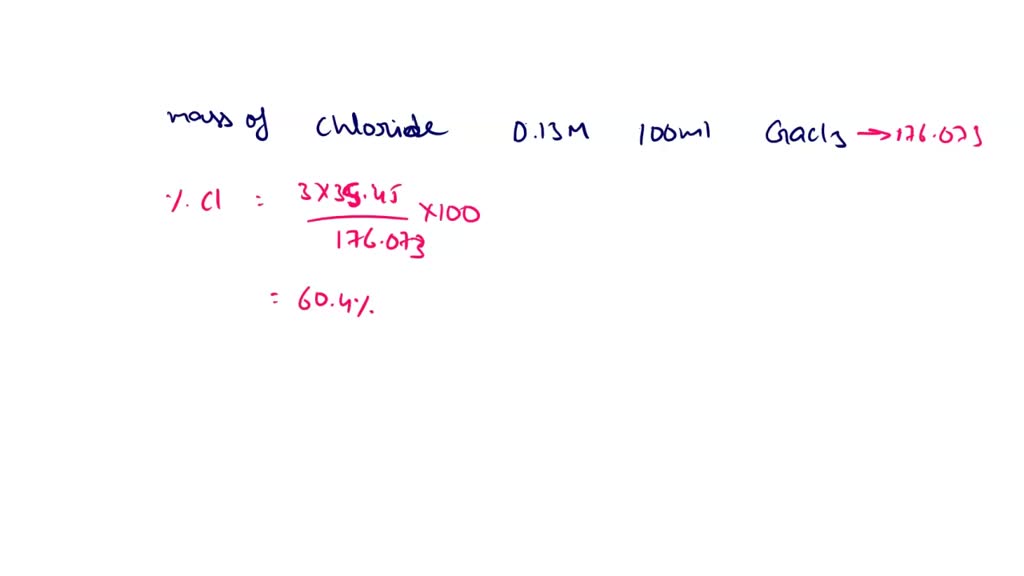 mass of chloride 0.13M 100ml GaCl3 → 176.073
% Cl = 3×35.45 / 176.073 ×100
= 60.4%